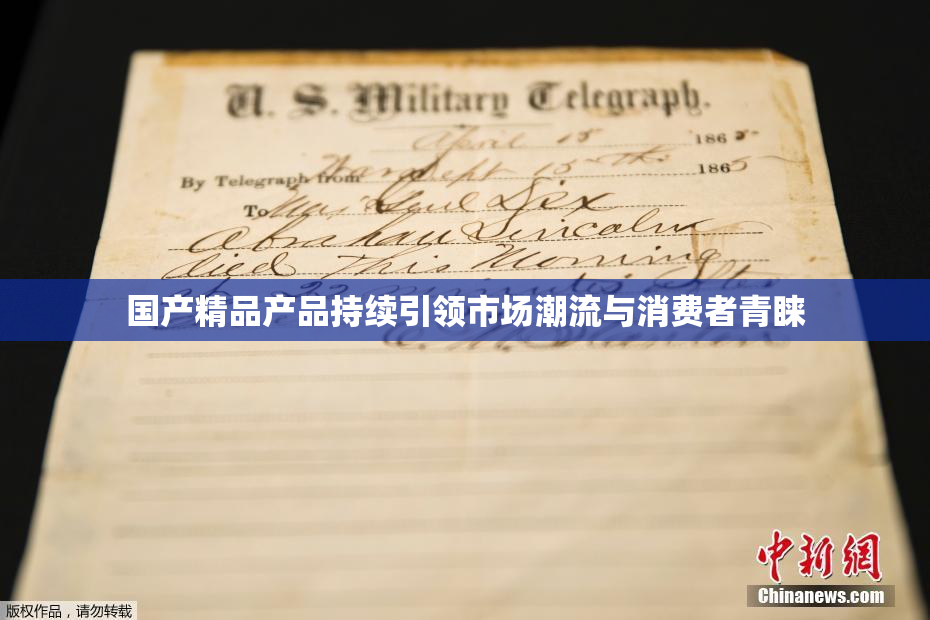 U. S. Military Telegraph.
April 15 1865
By Telegraph from War Dept 15th 1865
To Maj Genl Dix
Abraham Lincoln
died This Morning
at 22 minutes after
国产精品产品持续引领市场潮流与消费者青睐
E. M. Stanton
中新網
Chinanews.com
版权作品，请勿转载